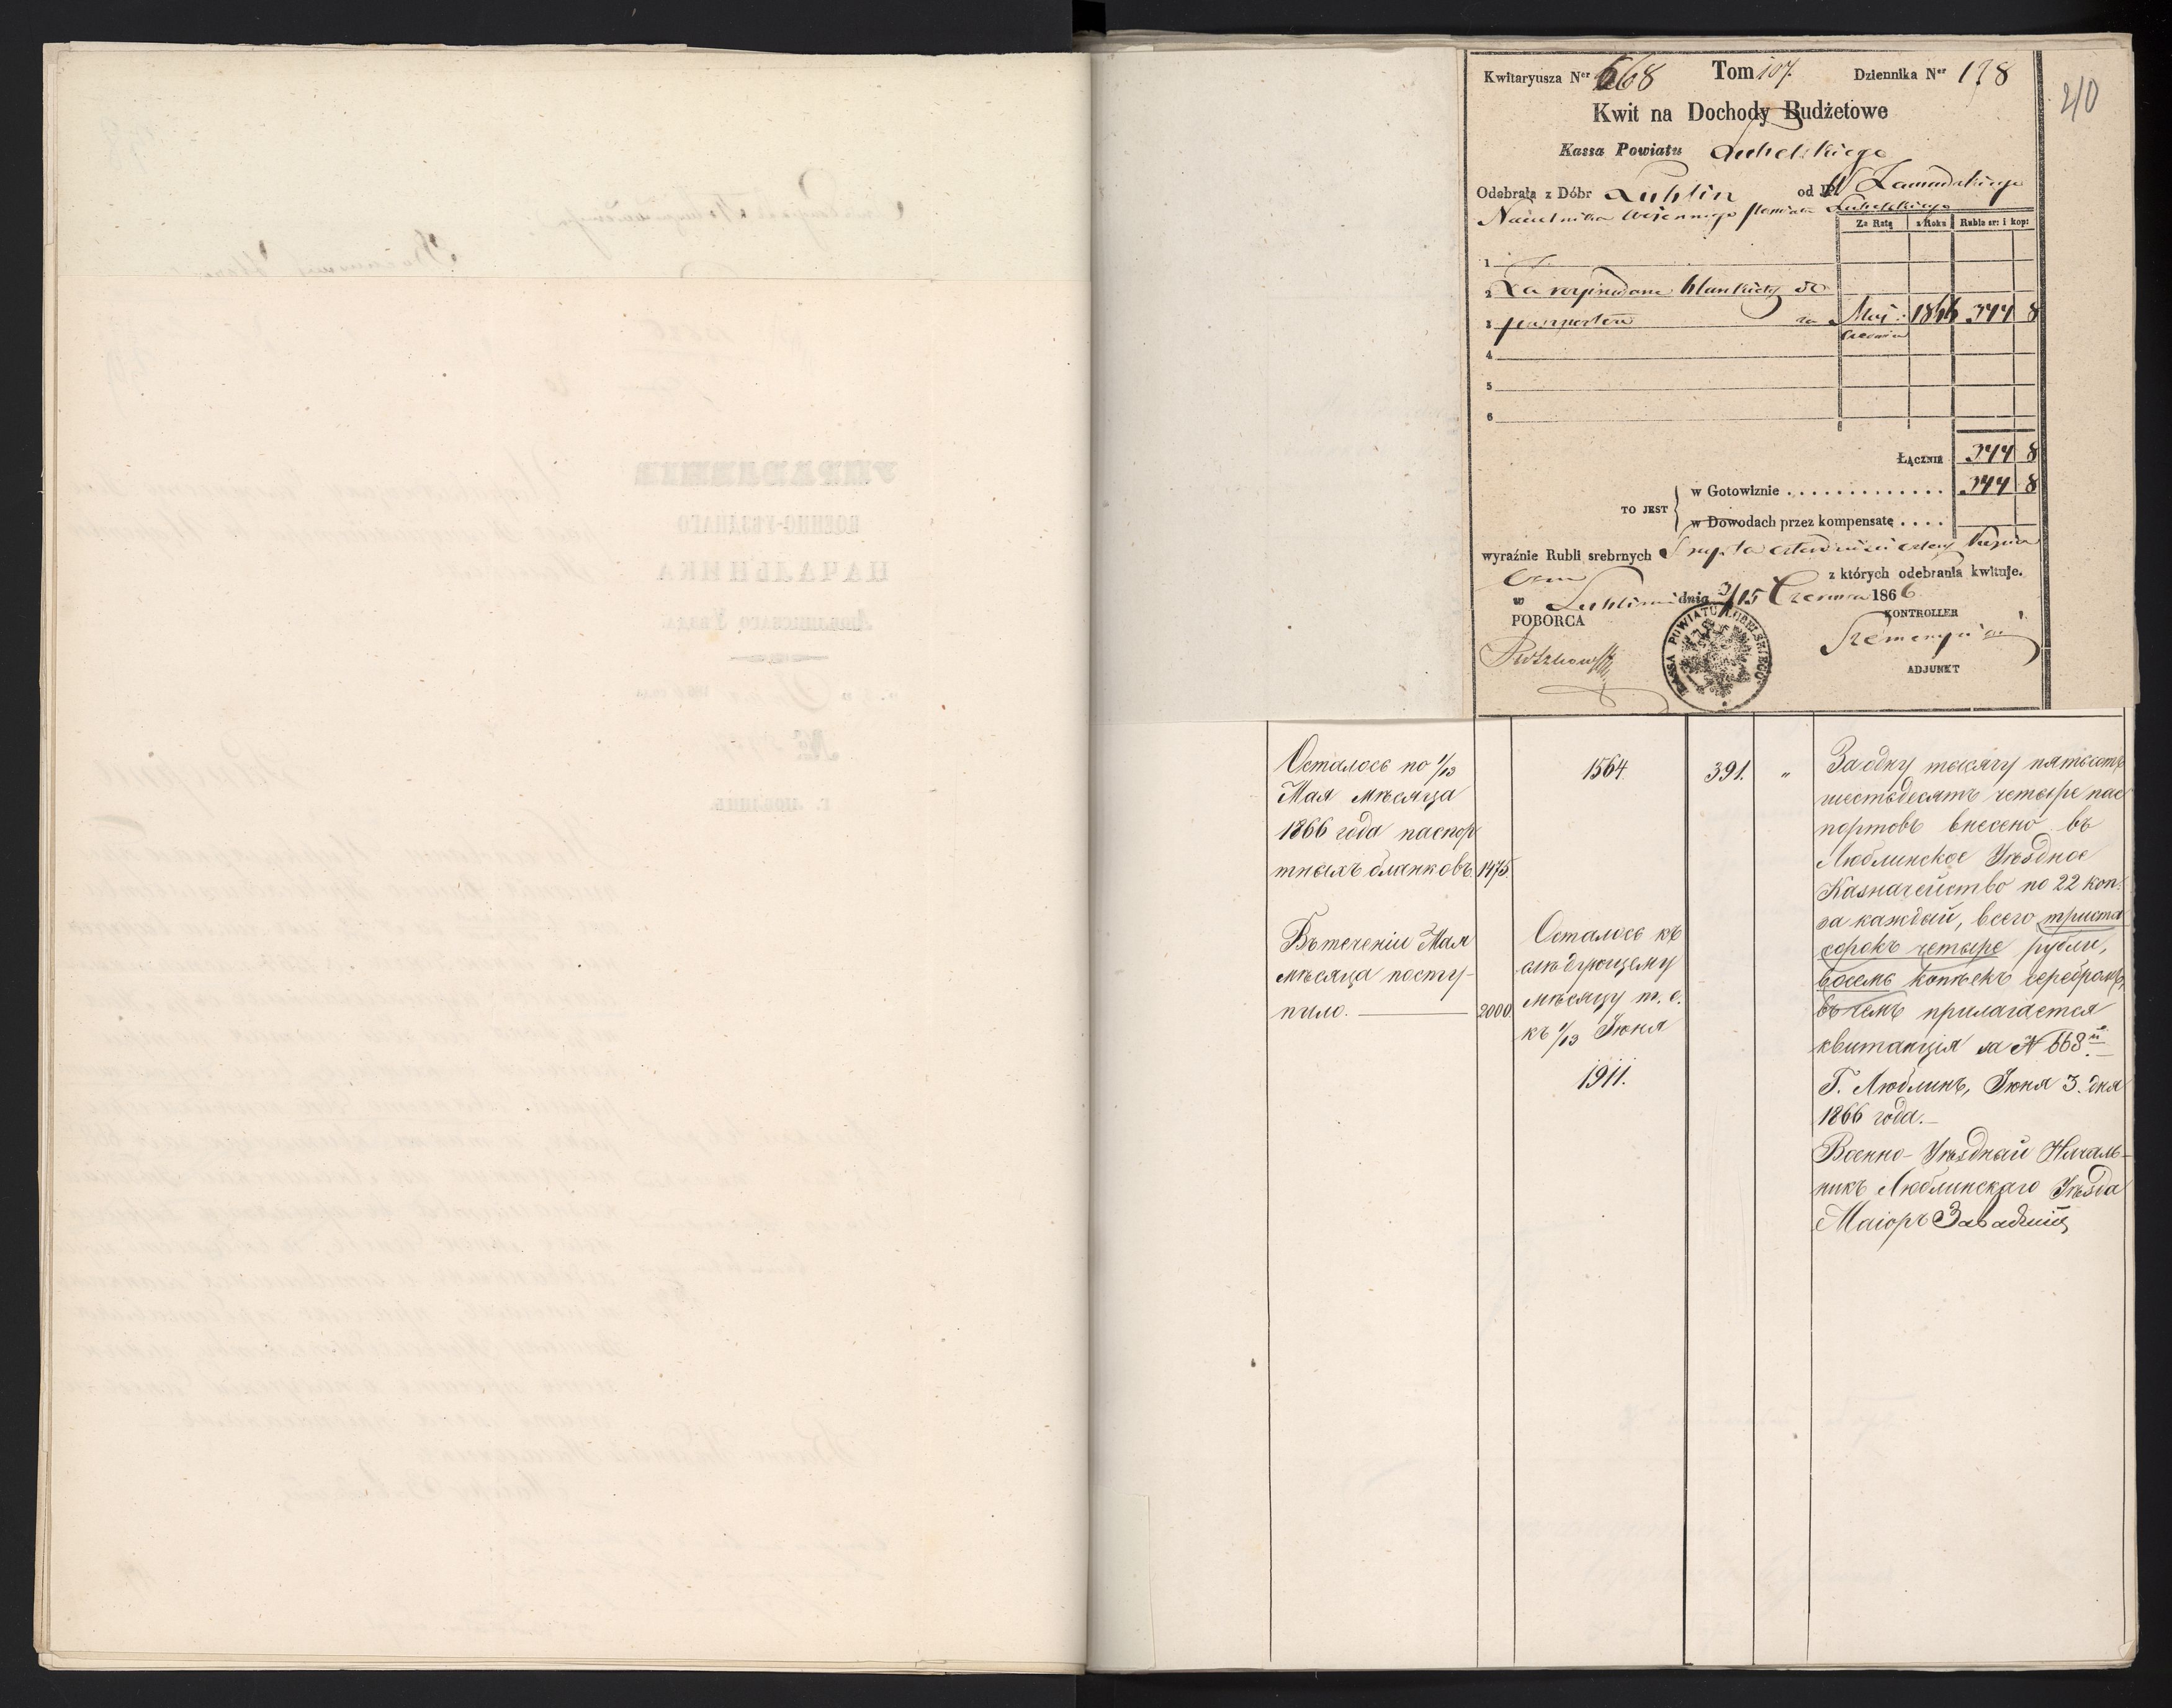 210
Kwitaryusza Ner 668 Tom 107. Dziennika Ner 178
Kwit na Dochody Budżetowe
Kassa Powiatu Lubelskiego
Odebrała z Dóbr Lublin od
Naczelnika Wojennego Powiatu Lubelskiego
Za Ratę z Roku Ruble sr: i kop:
1
2 Za rozprzedane blankiety do
3 paszportów za Maj 1866 344 8
Czerwiec
4
5
6
ŁĄCZNIE 344 8
TO JEST
w Gotowiznie . . . . . . . . . . . . . 344 8
w Dowodach przez kompensatę . . . .
wyraźnie Rubli srebrnych Trzysta czterdzieści cztery kopiejek
Ośm z których odebrania kwituje.
w Lublinie dnia 3/15 Czerwca 1866
POBORCA
KONTROLLER
KASSA POWIATU LUBELSKIEGO
ADJUNKT
Осталось по 1/13
Мая мѣсяца
1866 года паспор
тныхъ бланковъ. 1475.
Въ теченіи Мая
мѣсяца посту-
пило. 2000.
1564.
Осталось къ
слѣдующему
мѣсяцу т. е.
къ 1/13 Іюня
1911.
391. „
За одну тысячу пятьсотъ
шестьдесятъ четыре пас
портовъ внесено въ
Люблинское Уѣздное
Казначейство по 22 коп.
за каждый, всего триста
сорокъ четыре рубли,
восемь копѣекъ серебромъ,
въ чемъ прилагается
квитанція за № 668й
Г. Люблинъ, Іюня 3. дня
1866 года.—
Военно-Уѣздный Началь-
никъ Люблинскаго Уѣзда
Маіоръ